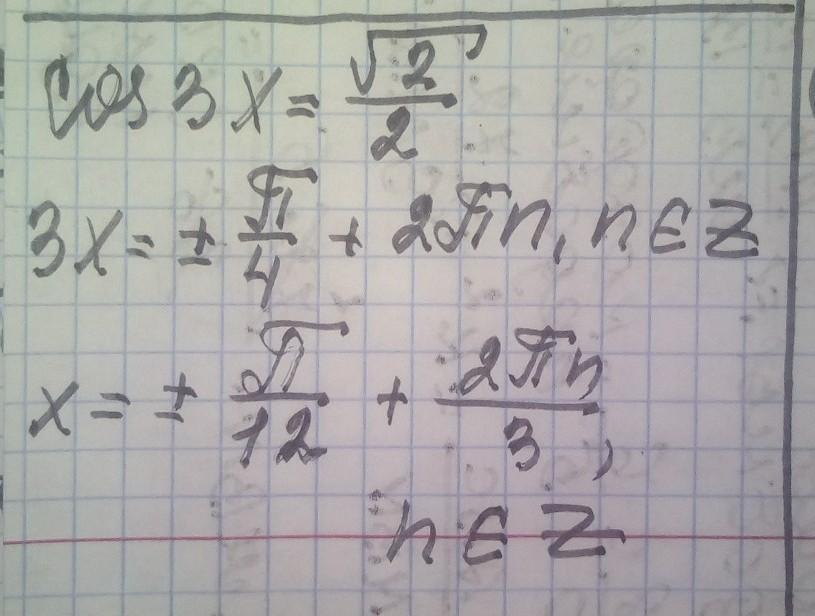 cos 3x = √2/2
3x = ± π/4 + 2πn, n ∈ Z
x = ± π/12 + 2πn/3,
n ∈ Z